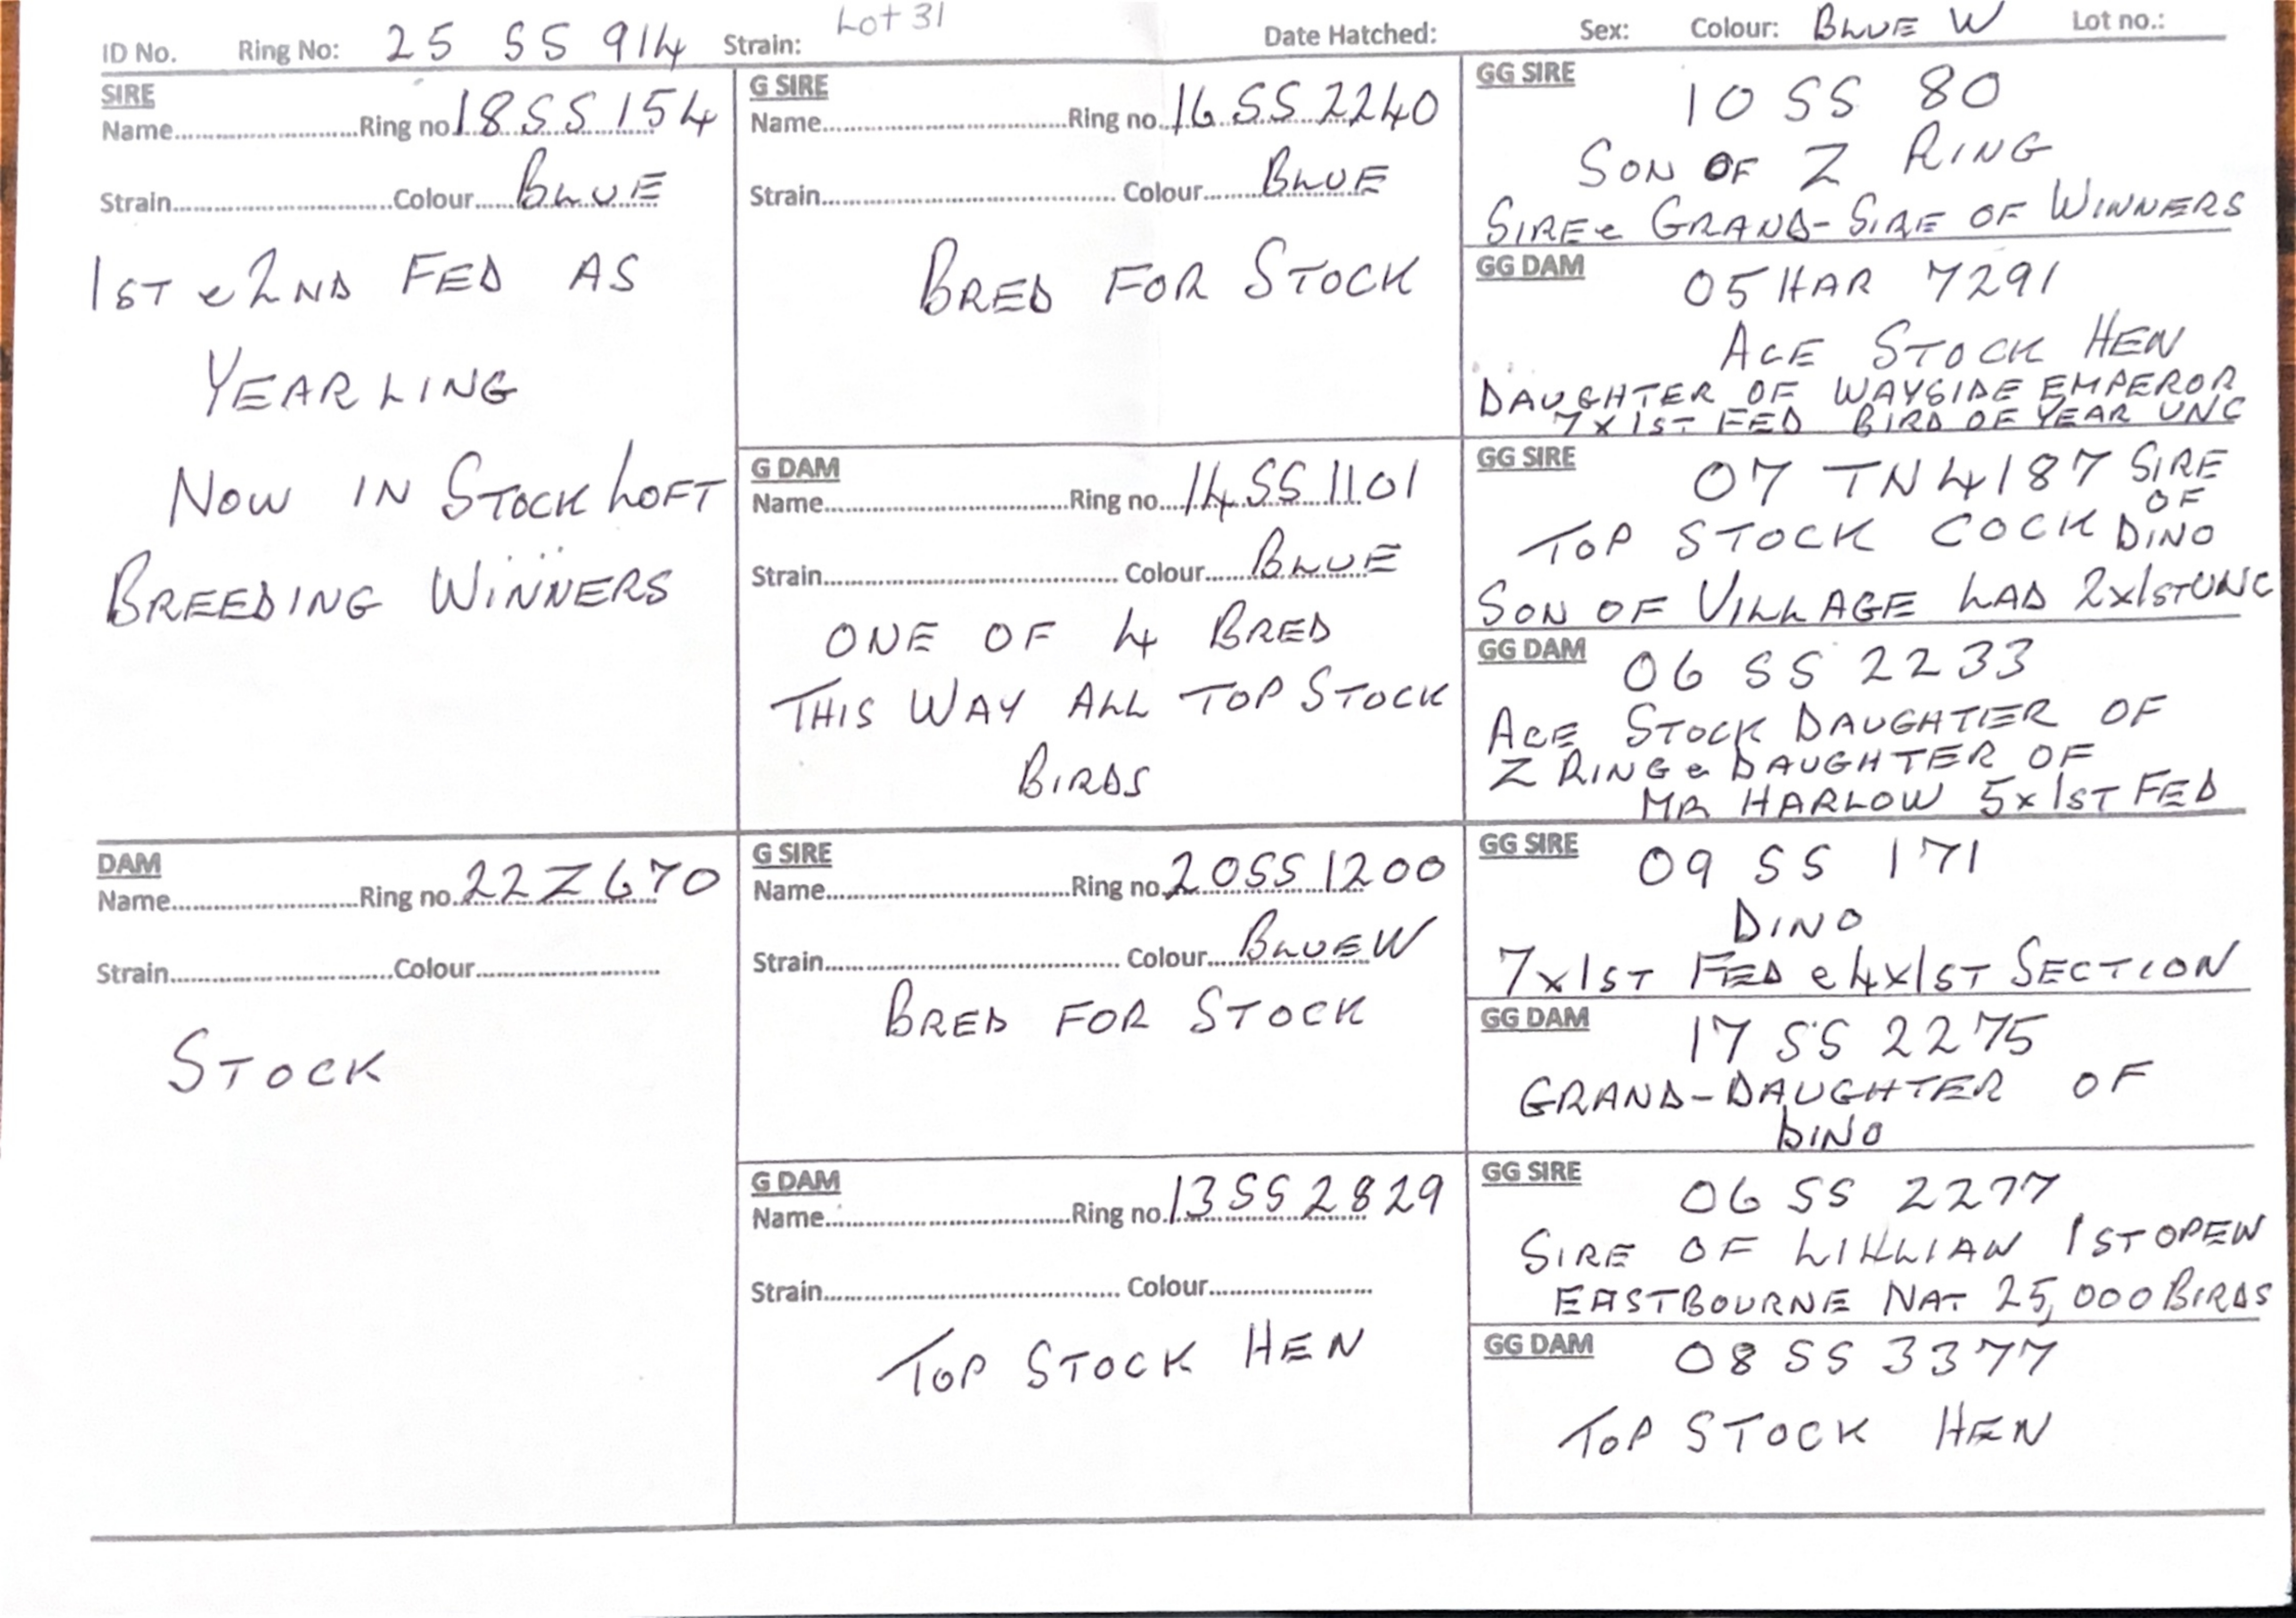 Lot 31
ID No. Ring No: 25 SS 914 Strain: Date Hatched: Sex: Colour: BLUE W Lot no.:
SIRE
Name Ring no 18SS154
Strain Colour BLUE
1ST & 2ND FED AS
YEARLING
NOW IN STOCK LOFT
BREEDING WINNERS
DAM
Name Ring no. 22Z670
Strain Colour
STOCK
G SIRE
Name Ring no. 16 SS 2240
Strain Colour BLUE
BRED FOR STOCK
G DAM
Name Ring no. 14SS1101
Strain Colour BLUE
ONE OF 4 BRED
THIS WAY ALL TOP STOCK
BIRDS
G SIRE
Name Ring no. 20SS1200
Strain Colour BLUE W
BRED FOR STOCK
G DAM
Name Ring no. 13SS2829
Strain Colour
TOP STOCK HEN
GG SIRE
10 SS 80
SON OF Z RING
SIRE & GRAND-SIRE OF WINNERS
GG DAM
05HAR 7291
ACE STOCK HEN
DAUGHTER OF WAYSIDE EMPEROR
7x1ST FED BIRD OF YEAR UNC
GG SIRE
07 TN4187 SIRE
OF
TOP STOCK COCK DINO
SON OF VILLAGE LAD 2x1ST UNC
GG DAM
06 SS 2233
ACE STOCK DAUGHTER OF
Z RING & DAUGHTER OF
MR HARLOW 5x1ST FED
GG SIRE
09 SS 171
DINO
7x1ST FED & 4x1ST SECTION
GG DAM
17 SS 2275
GRAND-DAUGHTER OF
DINO
GG SIRE
06 SS 2277
SIRE OF LILLIAN 1ST OPEN
EASTBOURNE NAT 25,000 BIRDS
GG DAM
08 SS 3377
TOP STOCK HEN